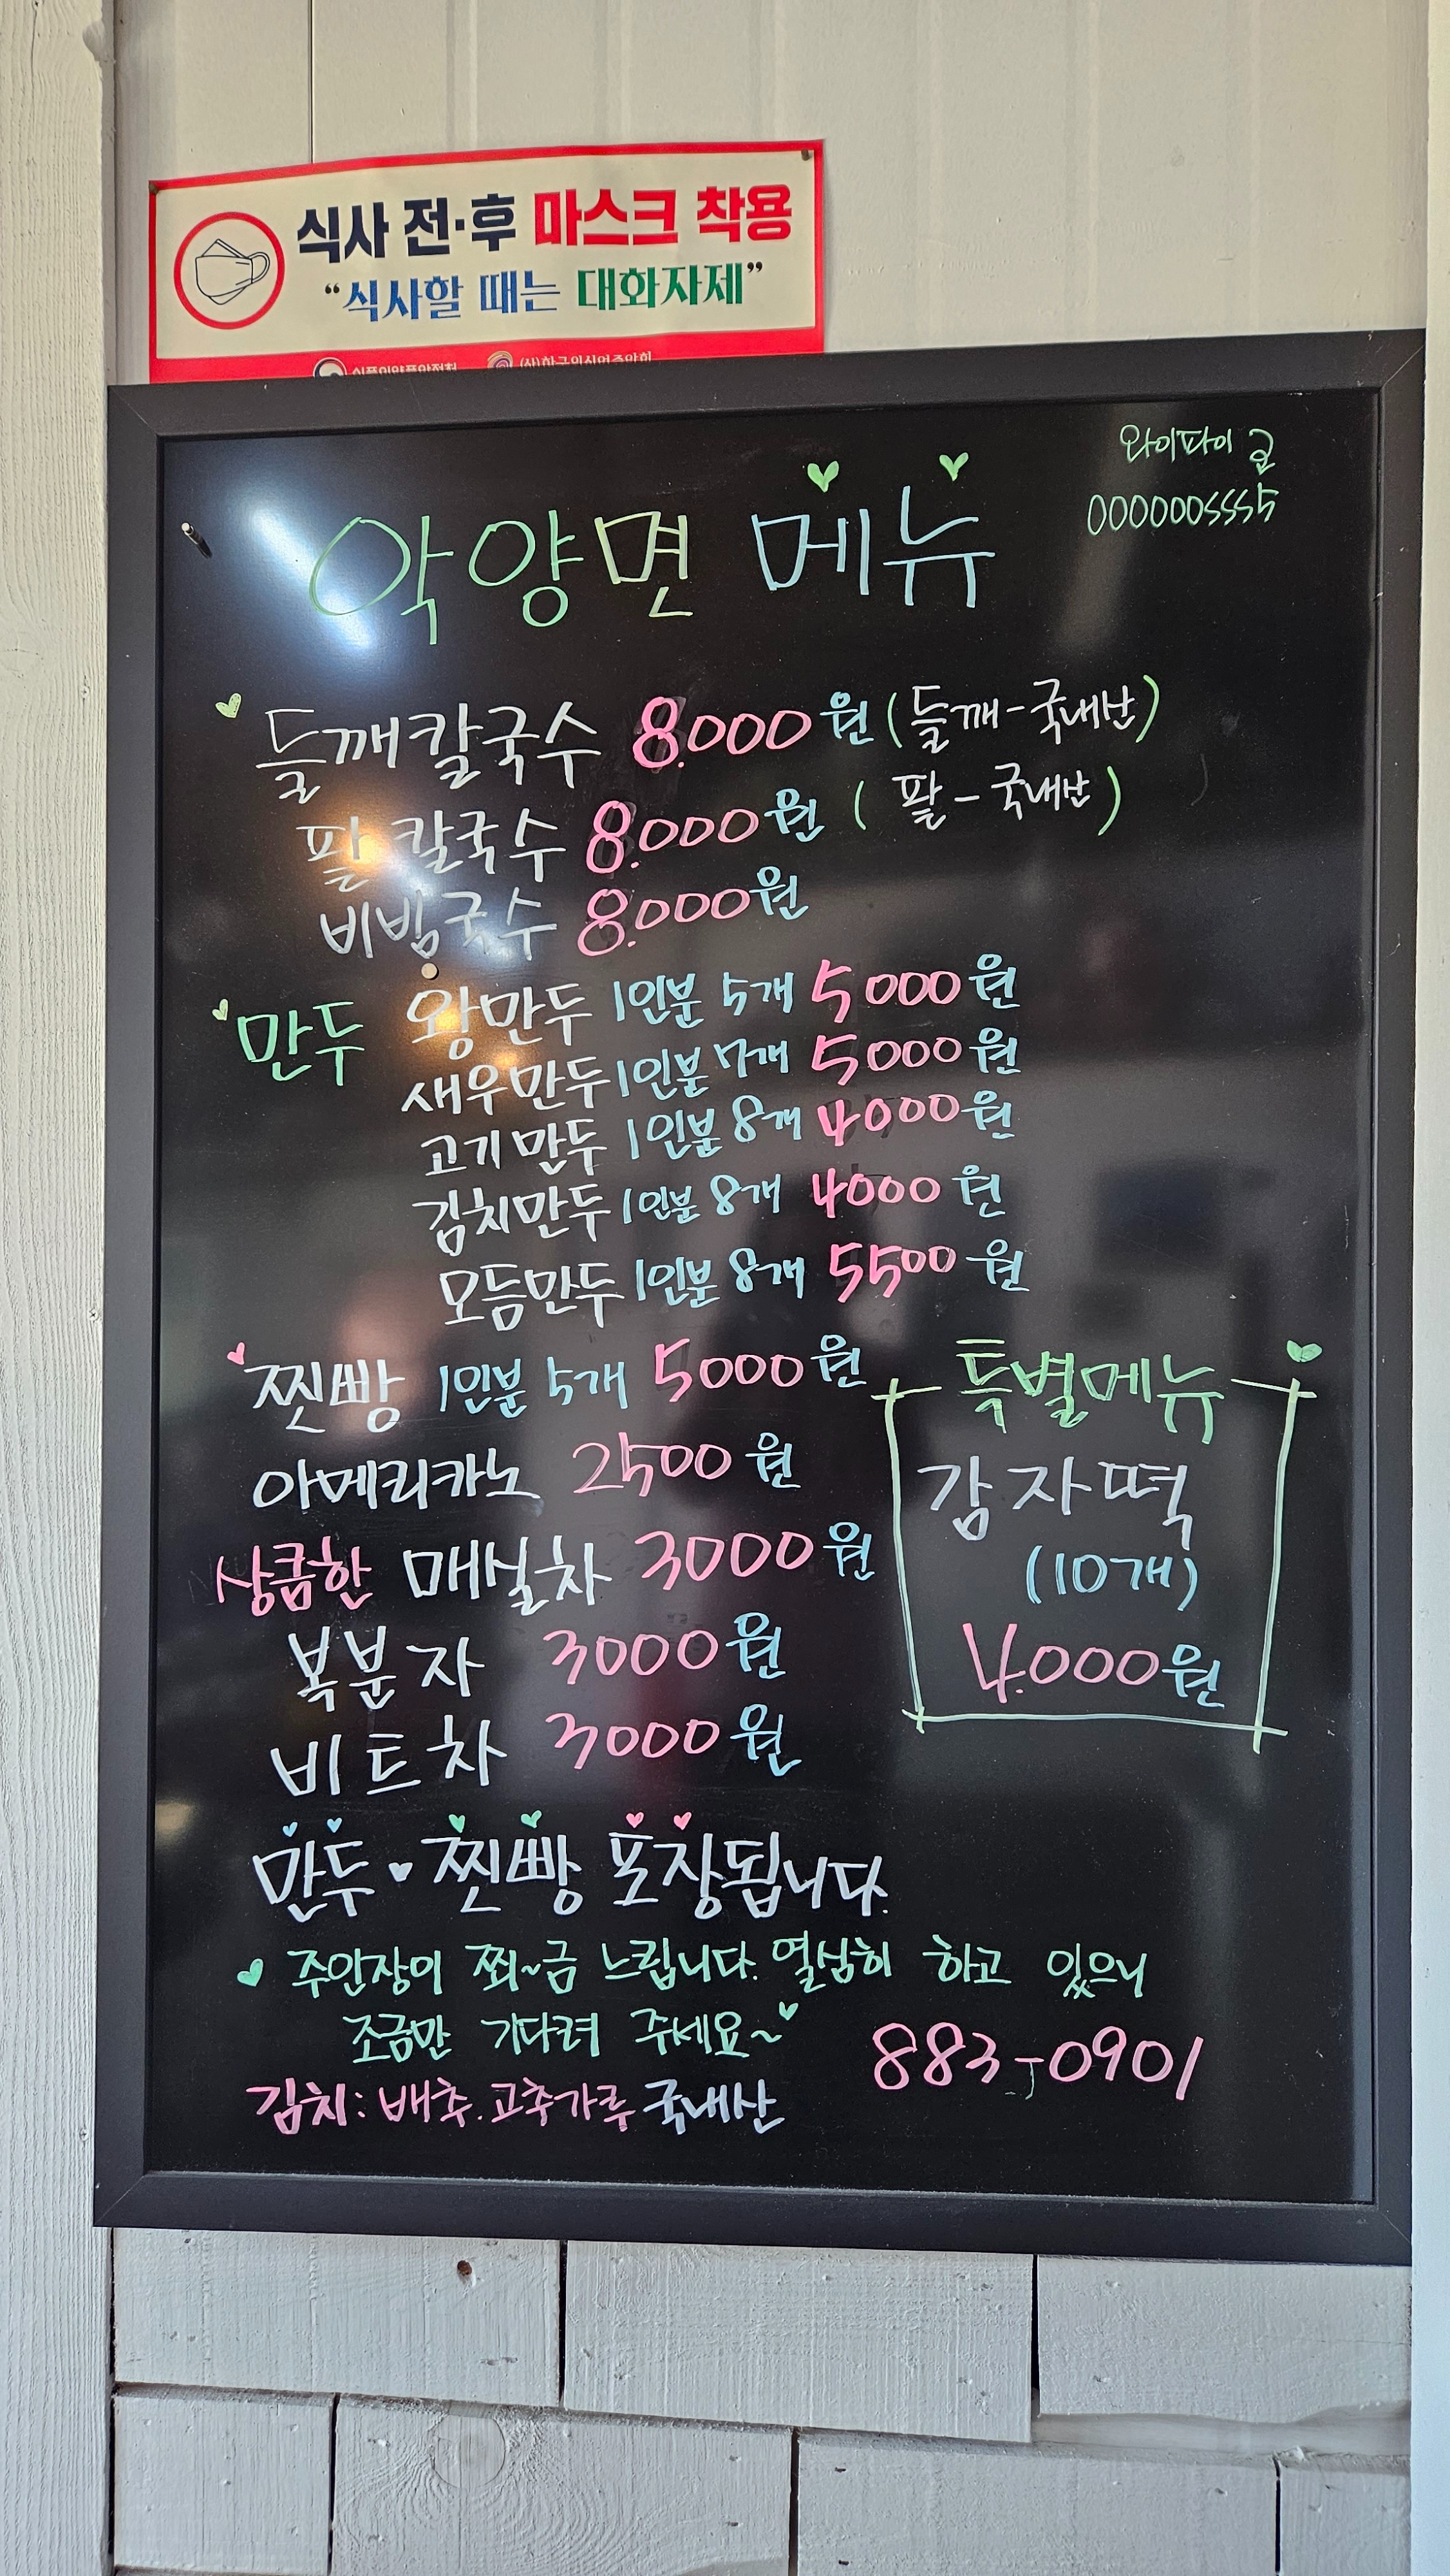 식사 전·후 마스크 착용
“식사할 때는 대화자제”
식품의약품안전처 (사)한국외식업중앙회
와이파이 코
0000005555
악양면 메뉴
들깨칼국수 8.000원 (들깨-국내산)
팥칼국수 8.000원 (팥-국내산)
비빔국수 8.000원
만두 왕만두 1인분 5개 5000원
새우만두 1인분 7개 5000원
고기만두 1인분 8개 4000원
김치만두 1인분 8개 4000원
모듬만두 1인분 8개 5500원
찐빵 1인분 5개 5000원
아메리카노 2500원
상큼한 매실차 3000원
복분자 3000원
비트차 3000원
특별메뉴
감자떡
(10개)
4.000원
만두·찐빵 포장됩니다.
주안장이 쬐~금 느립니다. 열심히 하고 있으니
조금만 기다려 주세요~
883-0901
김치: 배추. 고추가루 국내산